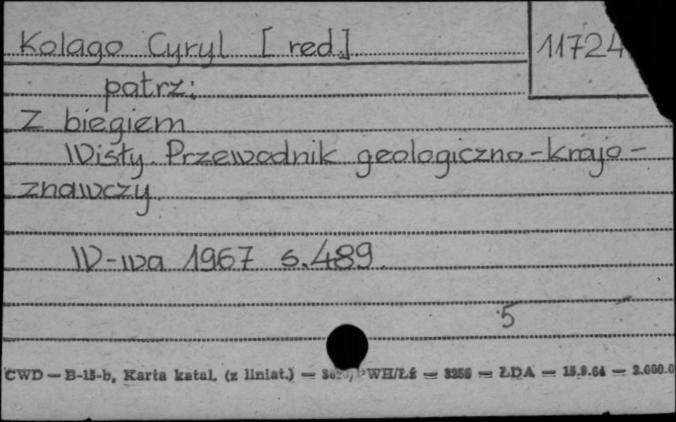 Kolago Cyryl [red.]
11724
patrz:
Z biegiem
Wisły. Przewodnik geologiczno-krajo-
znawczy
W-wa 1967 s.489.
5
CWD — B-15-b, Karta katal. (z liniat.) — WH/Łź — 3256 — ŁDA — 15.9.64 — 2.000.0